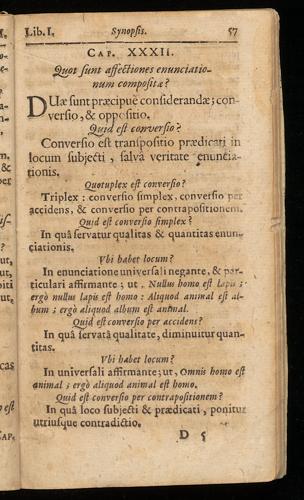 Lib. I. Synopsis. 57
CAP. XXXII.
Quot sunt affectiones enunciatio-
num compositæ?
DUæ sunt præcipuè considerandæ; con-
versio, & oppositio.
Quid est conversio?
Conversio est transpositio prædicati in
locum subjecti, salvâ veritate enuncia-
tionis.
Quotuplex est conversio?
Triplex: conversio simplex, conversio per
accidens, & conversio per contrapositionem.
Quid est conversio simplex?
In quâ servatur qualitas & quantitas enun-
ciationis.
Vbi habet locum?
In enunciatione universali negante, & par-
ticulari affirmante; ut, Nullus homo est lapis;
ergò nullus lapis est homo: Aliquod animal est al-
bum; ergo aliquod album est animal.
Quid est conversio per accidens?
In quâ servatâ qualitate, diminuitur quan-
titas.
Vbi habet locum?
In universali affirmante; ut, Omnis homo est
animal; ergò aliquod animal est homo.
Quid est conversio per contrapositionem?
In quâ loco subjecti & prædicati, ponitur
utriusque contradictio.
D 5